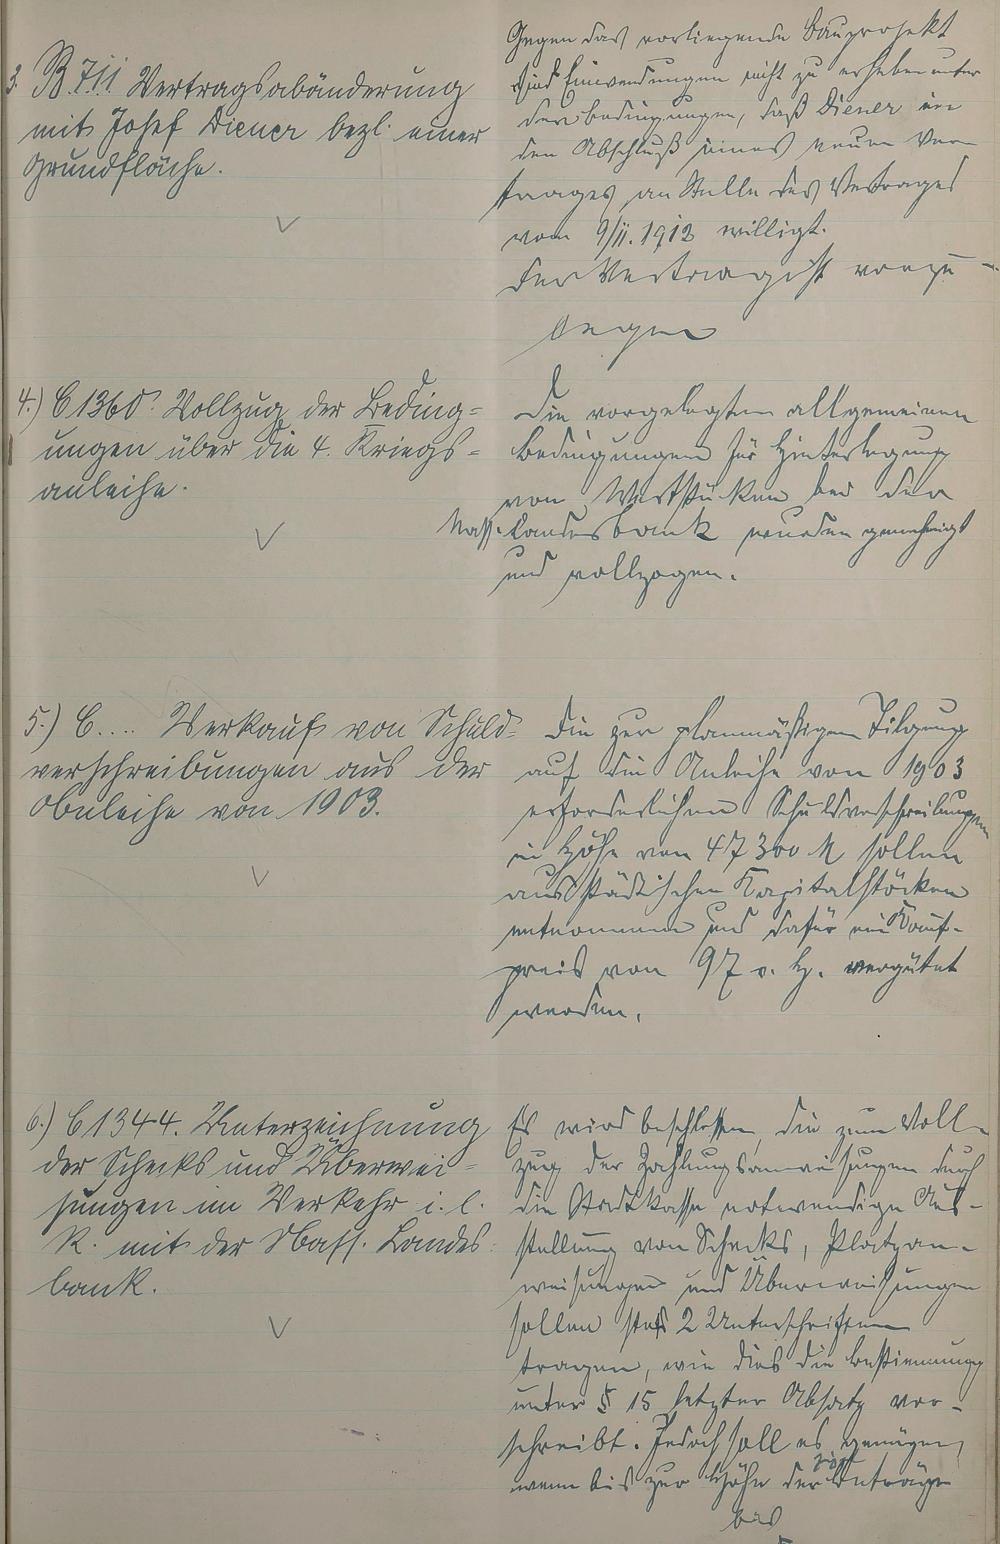 3. B 711 Vertragsabänderung
mit Josef Diener bezl. einer
Grundfläche.
Gegen das vorliegende Bauprojekt
sind Einwendungen nicht zu erheben unter
der Bedingungen, daß Diener in
den Abschluß eines neuen Ver-
trages an Stelle des Vertrages
vom 9/II. 1912 willigt.
Der Vertrag ist vorzu-
legen
4.) C 1360. Vollzug der Beding=
ungen über die 4. Kriegs=
anleihe.
Die vorgelegten allgemeinen
Bedingungen für Hinterlegung
von Wertstücken bei der
Nass. Landesbank werden genehmigt
und vollzogen.
5.) C.... Verkauf von Schuld=
verschreibungen aus der
Anleihe von 1903.
Die zur planmäßigen Tilgung
auf die Anleihe von 1903
erforderlichen Schuldverschreibungen
in Höhe von 47300 M sollen
aus städtischen Kapitalstöcken
entnommen und dafür ein Kauf-
preis von 97 v. H. vergütet
werden.
6.) C 1344. Unterzeichnung
der Schecks und Überwei=
sungen im Verkehr i. l.
R. mit der Nass. Landes=
bank.
Es wird beschlossen, die zum Voll-
zug der Zahlungsanweisungen durch
die Stadtkasse notwendige Aus-
stellung von Schecks, Platzan-
weisungen und Überweisungen
sollen stets 2 Unterschriften
tragen, wie dies die Bestimmung
unter § 15 letzter Absatz vor-
schreibt. Jedoch soll es genügen,
wenn bis zur Höhe der Beträge
bis